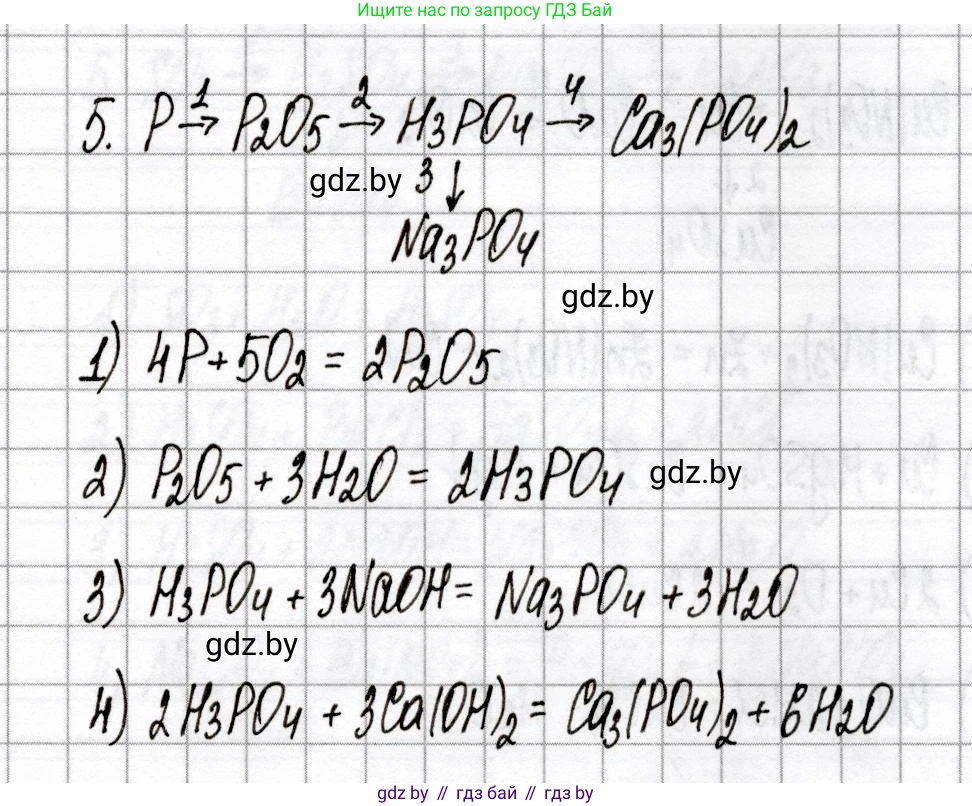 Ищите нас по запросу ГДЗ Бай
5. P 1→ P2O5 2→ H3PO4 4→ Ca3(PO4)2
gdz.by 3 ↓
Na3PO4
gdz.by
1) 4P + 5O2 = 2P2O5
2) P2O5 + 3H2O = 2H3PO4 gdz.by
3) H3PO4 + 3NaOH = Na3PO4 + 3H2O
gdz.by
4) 2H3PO4 + 3Ca(OH)2 = Ca3(PO4)2 + 6H2O
gdz.by // гдз бай // гдз by